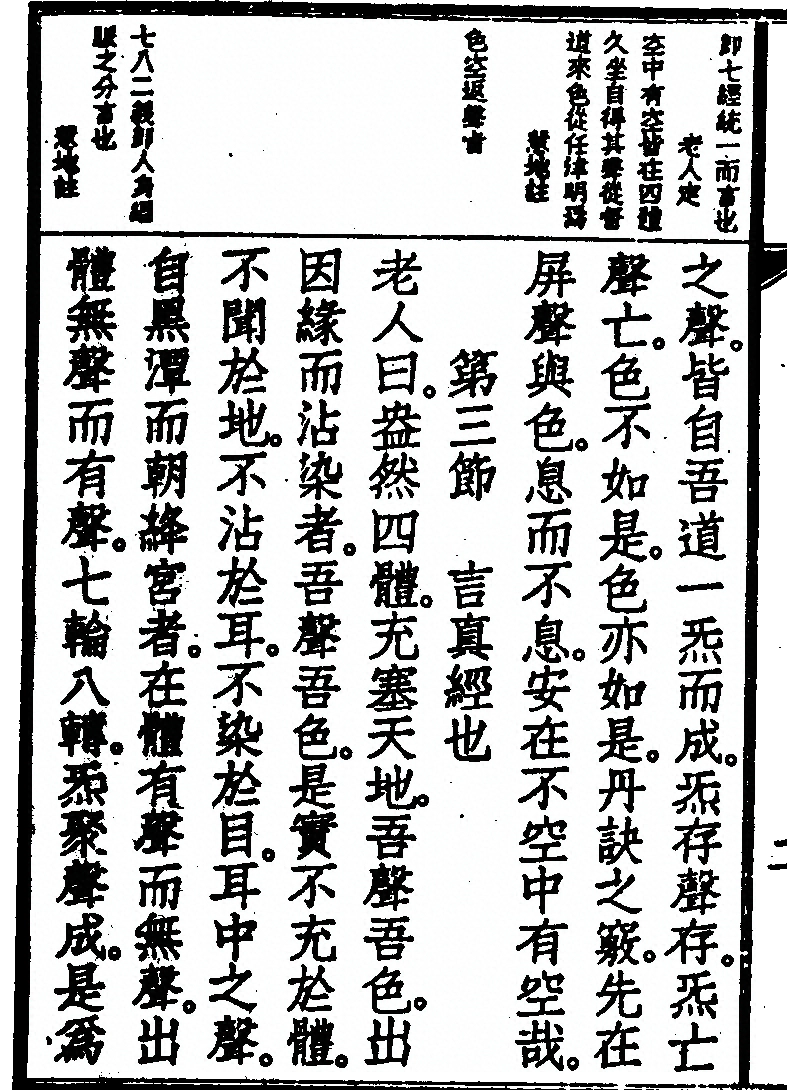 卽七經統一而言也
老人定
空中有空皆在四體
久坐自得其聲從督
道來色從任緯明
慧地註
色空返聲言
七八二義卽人身經
脈之分言也
慧地註
之聲。皆自吾道一炁而成。炁存聲存。炁亡
聲亡。色不如是。色亦如是。丹訣之竅。先在
屏聲與色。息而不息。安在不空中有空哉。
第三節　言真經也
老人曰。盎然四體。充塞天地。吾聲吾色。出
因緣而沾染者。吾聲吾色。是實不充於體。
不聞於地。不沾於耳。不染於目。耳中之聲。
自黑潭而朝絳宮者。在體有聲而無聲。出
體無聲而有聲。七輪八轉。炁聚聲成。是爲